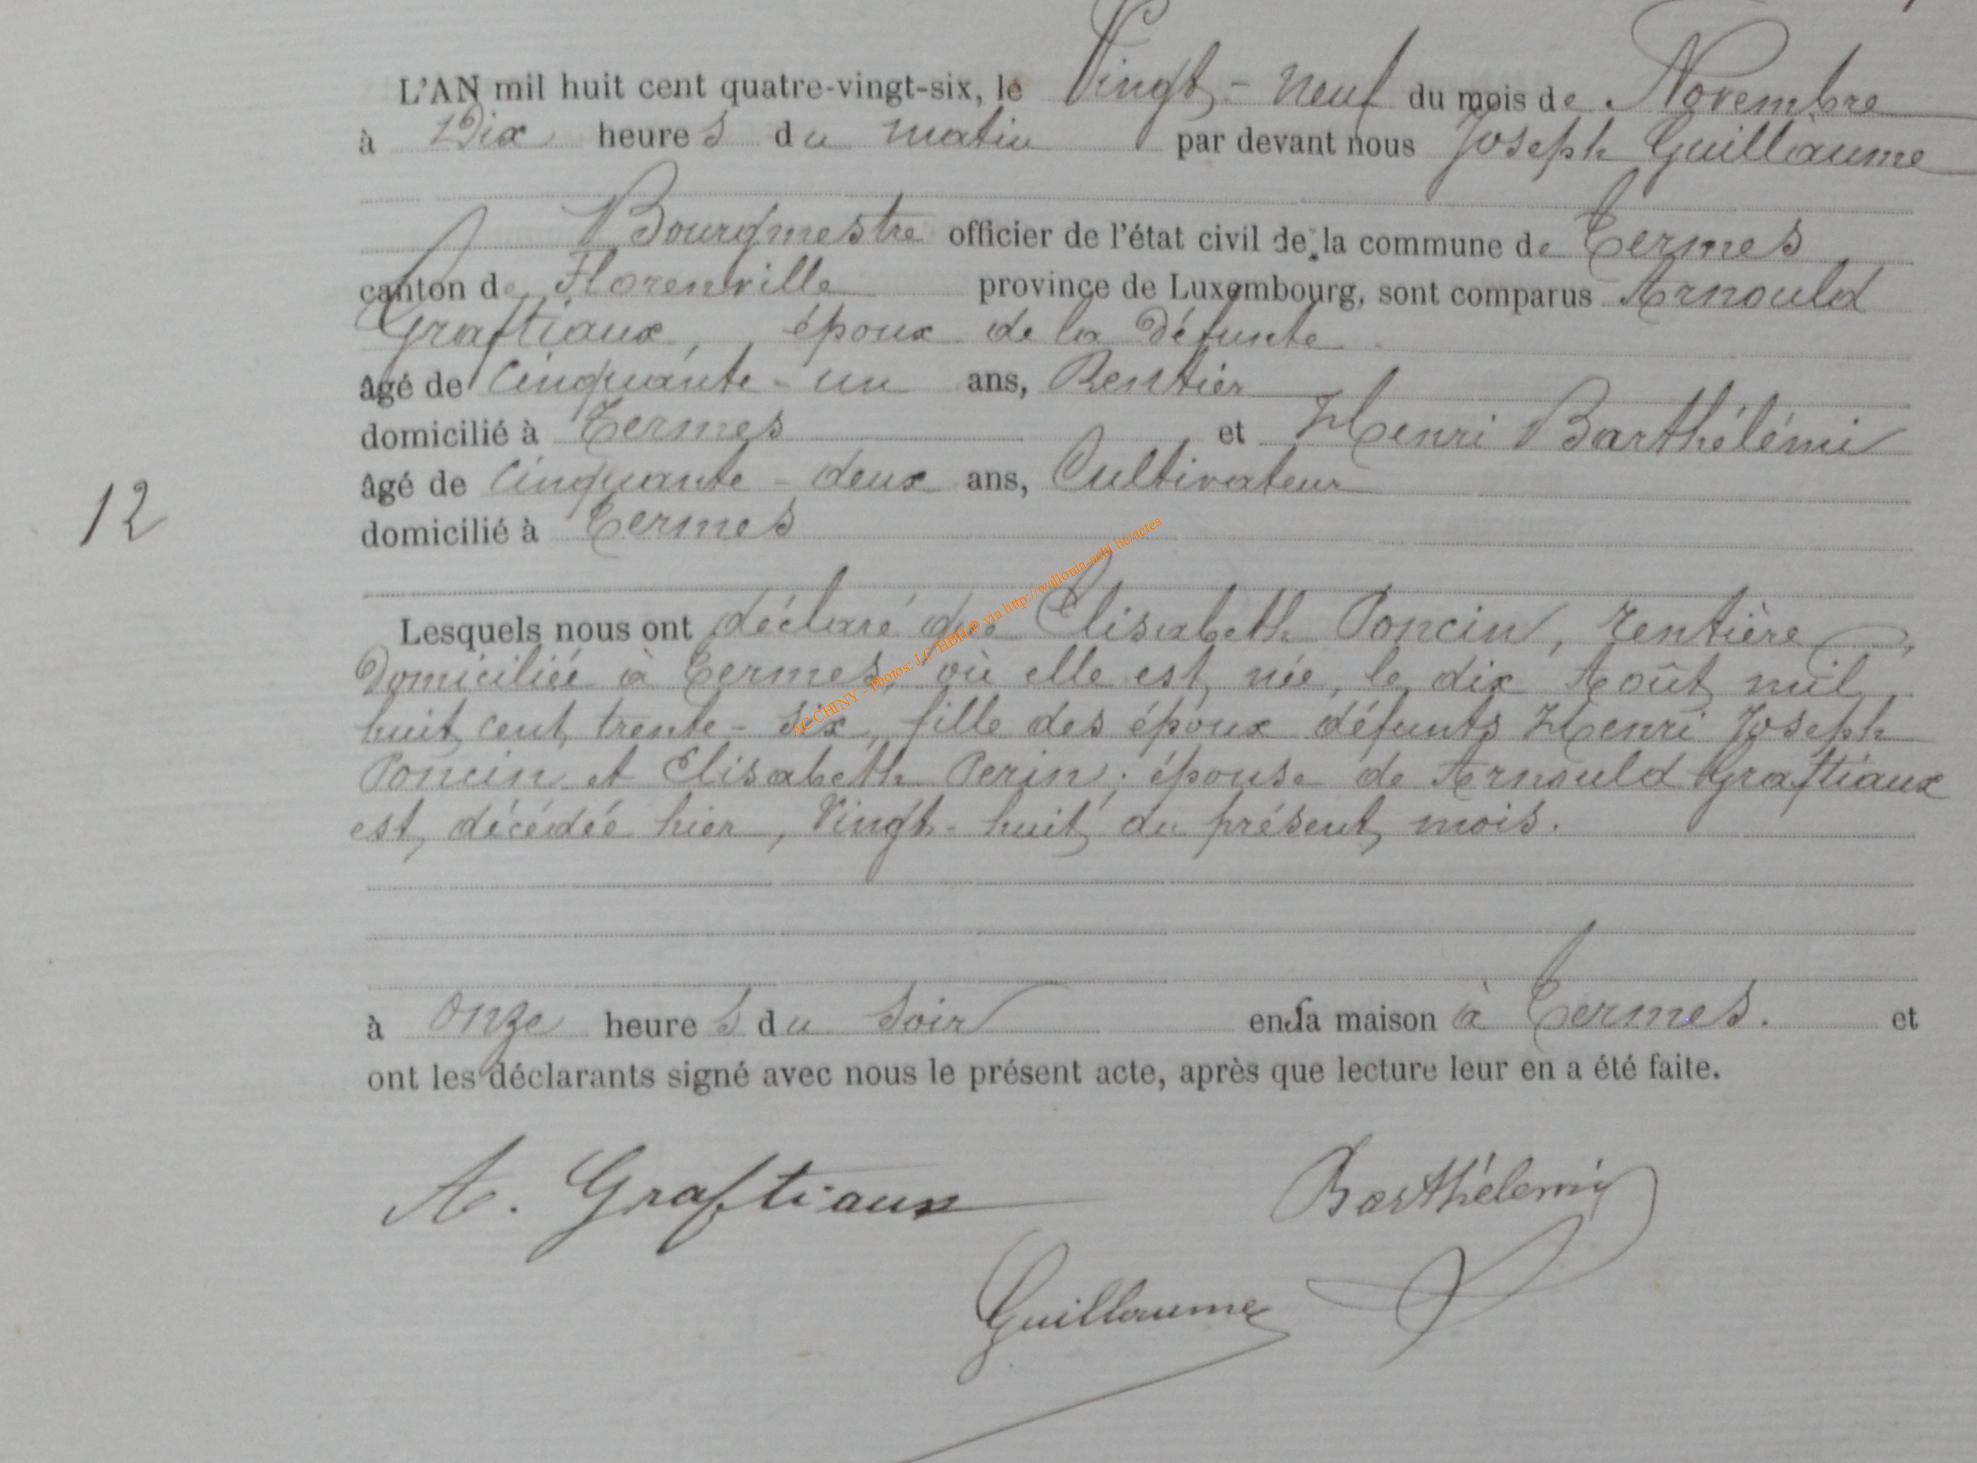 L'AN mil huit cent quatre-vingt-six, le Vingt-neuf du mois de Novembre
à Dix heures du matin par devant nous Joseph Guillaume
Bourgmestre officier de l'état civil de la commune de Termes
canton de Florenville province de Luxembourg, sont comparus Arnould
Graftiaux, époux de la défunte
âgé de Cinquante-un ans, Rentier
domicilié à Termes et Henri Barthélémi
12
âgé de Cinquante-deux ans, Cultivateur
domicilié à Termes
LC CHINY - Photos: LC HIBLE via http://wallonia.asbl.be/actes
Lesquels nous ont déclaré que Elisabeth Poncin, rentière,
Domiciliée à Termes, où elle est née, le dix Août mil
huit cent trente-six, fille des époux défunts Henri Joseph
Poncin et Elisabeth Perin; épouse de Arnould Graftiaux
est décédée hier, Vingt-huit du présent mois.
à onze heures du soir en sa maison à Termes. et
ont les déclarants signé avec nous le présent acte, après que lecture leur en a été faite.
A. Graftiaux Barthélemi
Guillaume